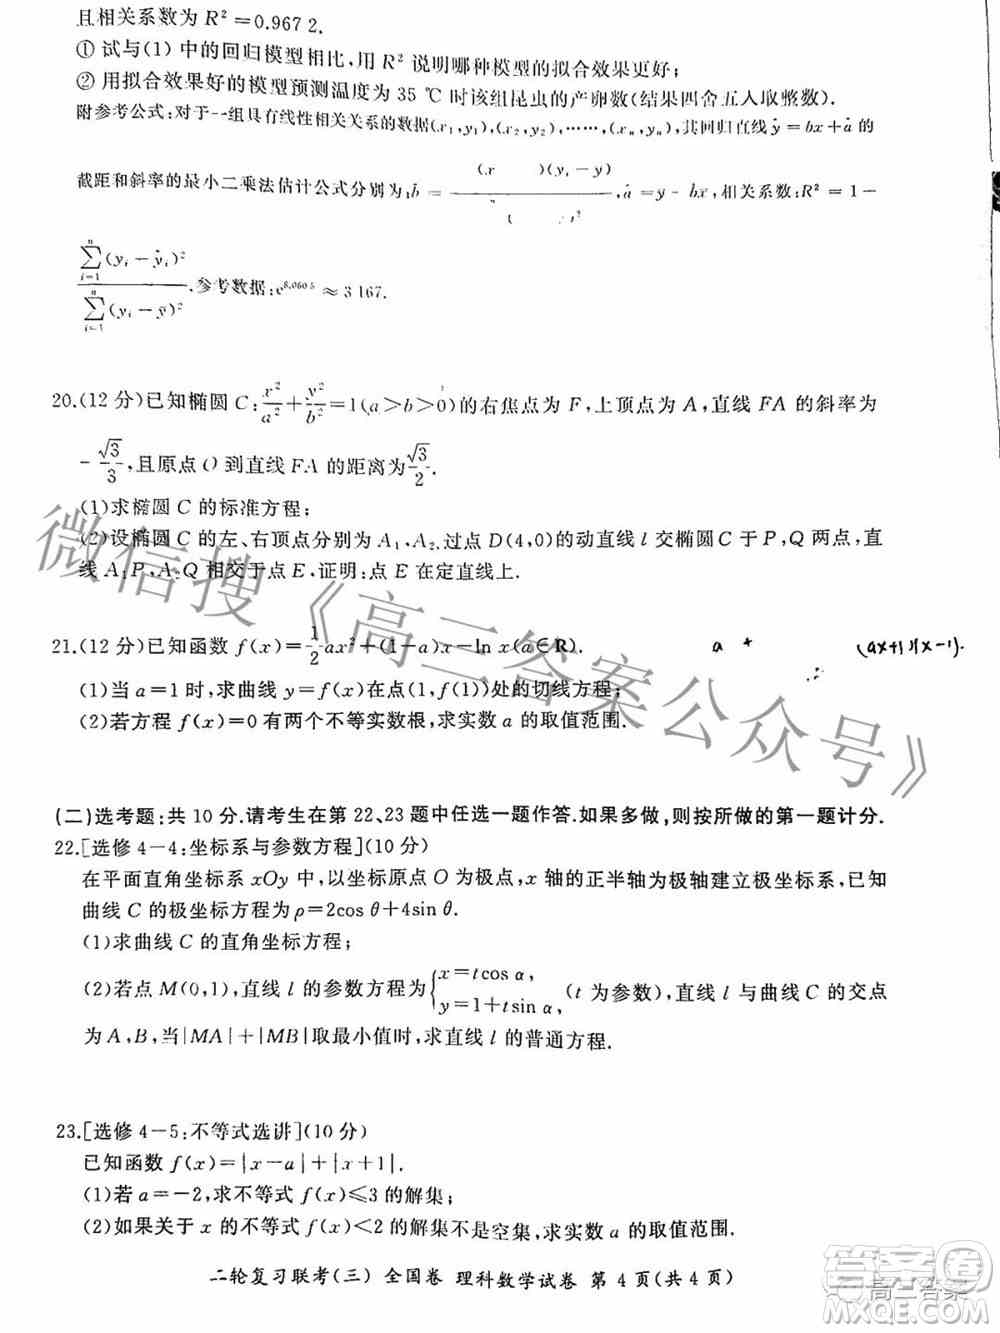 且相关系数为 R²=0.967 2.
①试与(1)中的回归模型相比,用 R² 说明哪种模型的拟合效果更好;
②用拟合效果好的模型预测温度为 35 ℃时该组昆虫的产卵数(结果四舍五入取整数).
附参考公式:对于一组具有线性相关关系的数据(x₁,y₁),(x₂,y₂),……,(xₙ,yₙ),其回归直线ŷ=b̂x+â的
截距和斜率的最小二乘法估计公式分别为,b̂= (x )(yᵢ-y) ,â=y-b̂x,相关系数:R²=1-
∑ⁿᵢ₌₁(yᵢ-ŷᵢ)² / ∑ⁿᵢ₌₁(yᵢ-ȳ)² .参考数据:e^8.060 5≈3 167.
20.(12 分)已知椭圆 C:x²/a²+y²/b²=1(a>b>0)的右焦点为 F,上顶点为 A,直线 FA 的斜率为
-√3/3,且原点 O 到直线 FA 的距离为√3/2.
(1)求椭圆 C 的标准方程;
(2)设椭圆 C 的左、右顶点分别为 A₁,A₂,过点 D(4,0)的动直线 l 交椭圆 C 于 P,Q 两点,直
线 A₁P,A₂Q 相交于点 E,证明:点 E 在定直线上.
21.(12 分)已知函数 f(x)=1/2ax²+(1-a)x-ln x(a∈R). a + (ax+1)(x-1).
(1)当 a=1 时,求曲线 y=f(x)在点(1,f(1))处的切线方程;
(2)若方程 f(x)=0 有两个不等实数根,求实数 a 的取值范围.
(二)选考题:共 10 分.请考生在第 22、23 题中任选一题作答.如果多做,则按所做的第一题计分.
22.[选修 4-4:坐标系与参数方程](10 分)
在平面直角坐标系 xOy 中,以坐标原点 O 为极点,x 轴的正半轴为极轴建立极坐标系,已知
曲线 C 的极坐标方程为 ρ=2cos θ+4sin θ.
(1)求曲线 C 的直角坐标方程;
(2)若点 M(0,1),直线 l 的参数方程为{x=tcos α, y=1+tsin α, (t 为参数),直线 l 与曲线 C 的交点
为 A,B,当|MA|+|MB|取最小值时,求直线 l 的普通方程.
23.[选修 4-5:不等式选讲](10 分)
已知函数 f(x)=|x-a|+|x+1|.
(1)若 a=-2,求不等式 f(x)≤3 的解集;
(2)如果关于 x 的不等式 f(x)<2 的解集不是空集,求实数 a 的取值范围.
二轮复习联考(三) 全国卷 理科数学试卷 第 4 页(共 4 页)
微信搜《高三答案公众号》
答案圈
高三答案
MXQE.COM